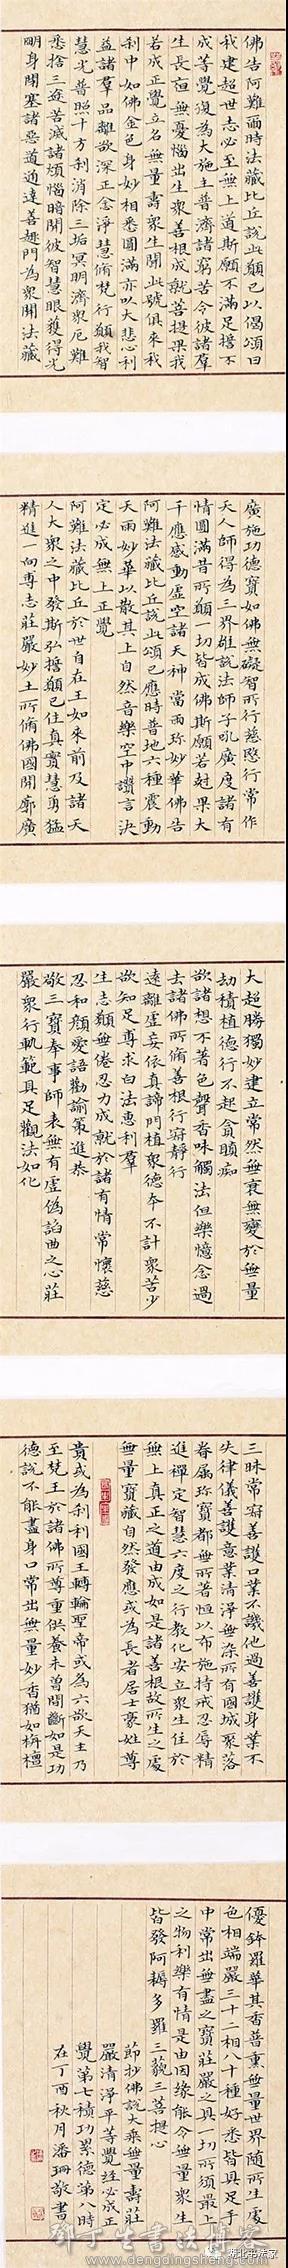 佛告阿難爾時法藏比丘說此願已以偈頌曰
我建超世志必至無上道斯願不滿足誓不
成等覺復為大施主普濟諸窮苦令彼諸群
生長夜無憂惱出生眾善根成就菩提果我
若成正覺立名無量壽眾生聞此號俱來我
刹中如佛金色身妙相悉圓滿亦以大悲心利
益諸群品離欲深正念淨慧修梵行願我智
慧光普照十方刹消除三垢冥明濟眾厄難
悉捨三途苦滅諸煩惱暗開彼智慧眼獲得光
明身閉塞諸惡道通達善趣門為眾開法藏
廣施功德寶如佛無礙智所行慈愍行常作
天人師得為三界雄說法師子吼廣度諸有
情圓滿昔所願一切皆成佛斯願若剋果大
千應感動虛空諸天神當雨珍妙華佛告
阿難法藏比丘說此頌已應時普地六種震動
天雨妙華以散其上自然音樂空中讚言決
定必成無上正覺
阿難法藏比丘於世自在王如來前及諸天
人大眾之中發斯弘誓願已住真實慧勇猛
精進一向專志莊嚴妙土所修佛國開廓廣
大超勝獨妙建立常然無衰無變於無量
劫積植德行不起貪瞋痴
欲諸想不著色聲香味觸法但樂憶念過
去諸佛所修善根行寂靜行
遠離虛妄依真諦門植眾德本不計眾苦少
欲知足專求白法惠利羣
生志願無倦忍力成就於諸有情常懷慈
忍和顏愛語勸諭策進恭
敬三寶奉事師長無有虛偽諂曲之心莊
嚴眾行軌範具足觀法如化
三昧常寂善護口業不譏他過善護身業不
失律儀善護意業清淨無染所有國城聚落
眷屬珍寶都無所著恒以布施持戒忍辱精
進禪定智慧六度之行教化安立眾生住於
無上真正之道由成如是諸善根故所生之處
無量寶藏自然發應或為長者居士豪姓尊
貴或為刹利國王轉輪聖帝或為六欲天主乃
至梵王於諸佛所尊重供養未曾間斷如是功
德說不能盡身口常出無量妙香猶如栴檀
優鉢羅華其香普熏無量世界隨所生處
色相端嚴三十二相八十種好悉皆具足手
中常出無盡之寶莊嚴之具一切所須最上
之物利樂有情是由因緣能令無量眾生
皆發阿耨多羅三藐三菩提心
節抄佛說大乘無量壽莊
嚴清淨平等覺經必成正
覺第七積功累德第八時
在丁酉秋月潘珊敬書
鄧丁生書法博客
www.dengdingsheng.com
湖北书法家